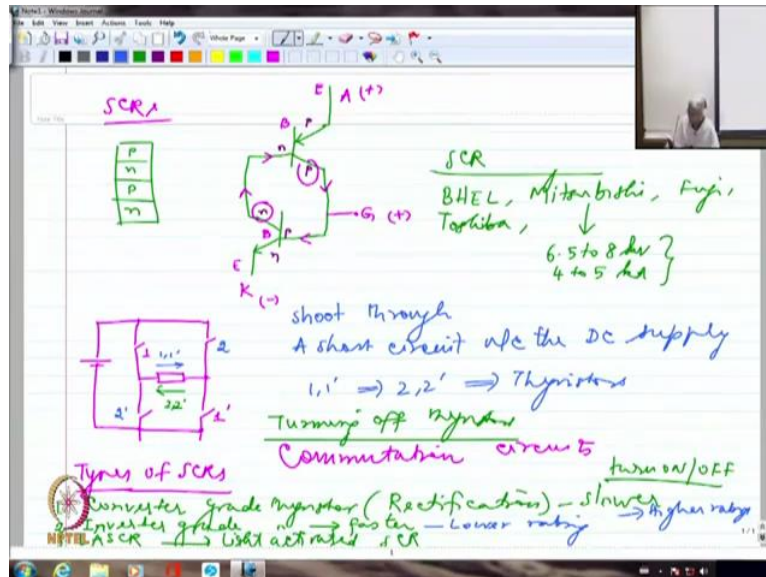 Note1 - Windows Journal
File Edit View Insert Actions Tools Help
Whole Page
Note Title
SCRs
p
n
p
n
E A (+)
B p
n p
n
B p
n
G (+)
E
K (-)
SCR
BHEL, Mitsubishi, Fuji,
Toshiba,
6.5 to 8 kV
4 to 5 kA
shoot through
A short circuit o/c the DC supply
1,1' ⇒ 2,2' ⇒ Thyristors
1 1,1' 2
2,2'
2' 1'
Turning off thyristor
Commutation circuits
Types of SCRs
turn on/OFF
1. Converter grade thyristor (Rectification) - slower → Higher rating
2. Inverter grade " → faster - Lower rating
LASCR → Light activated SCR
NPTEL
1/1